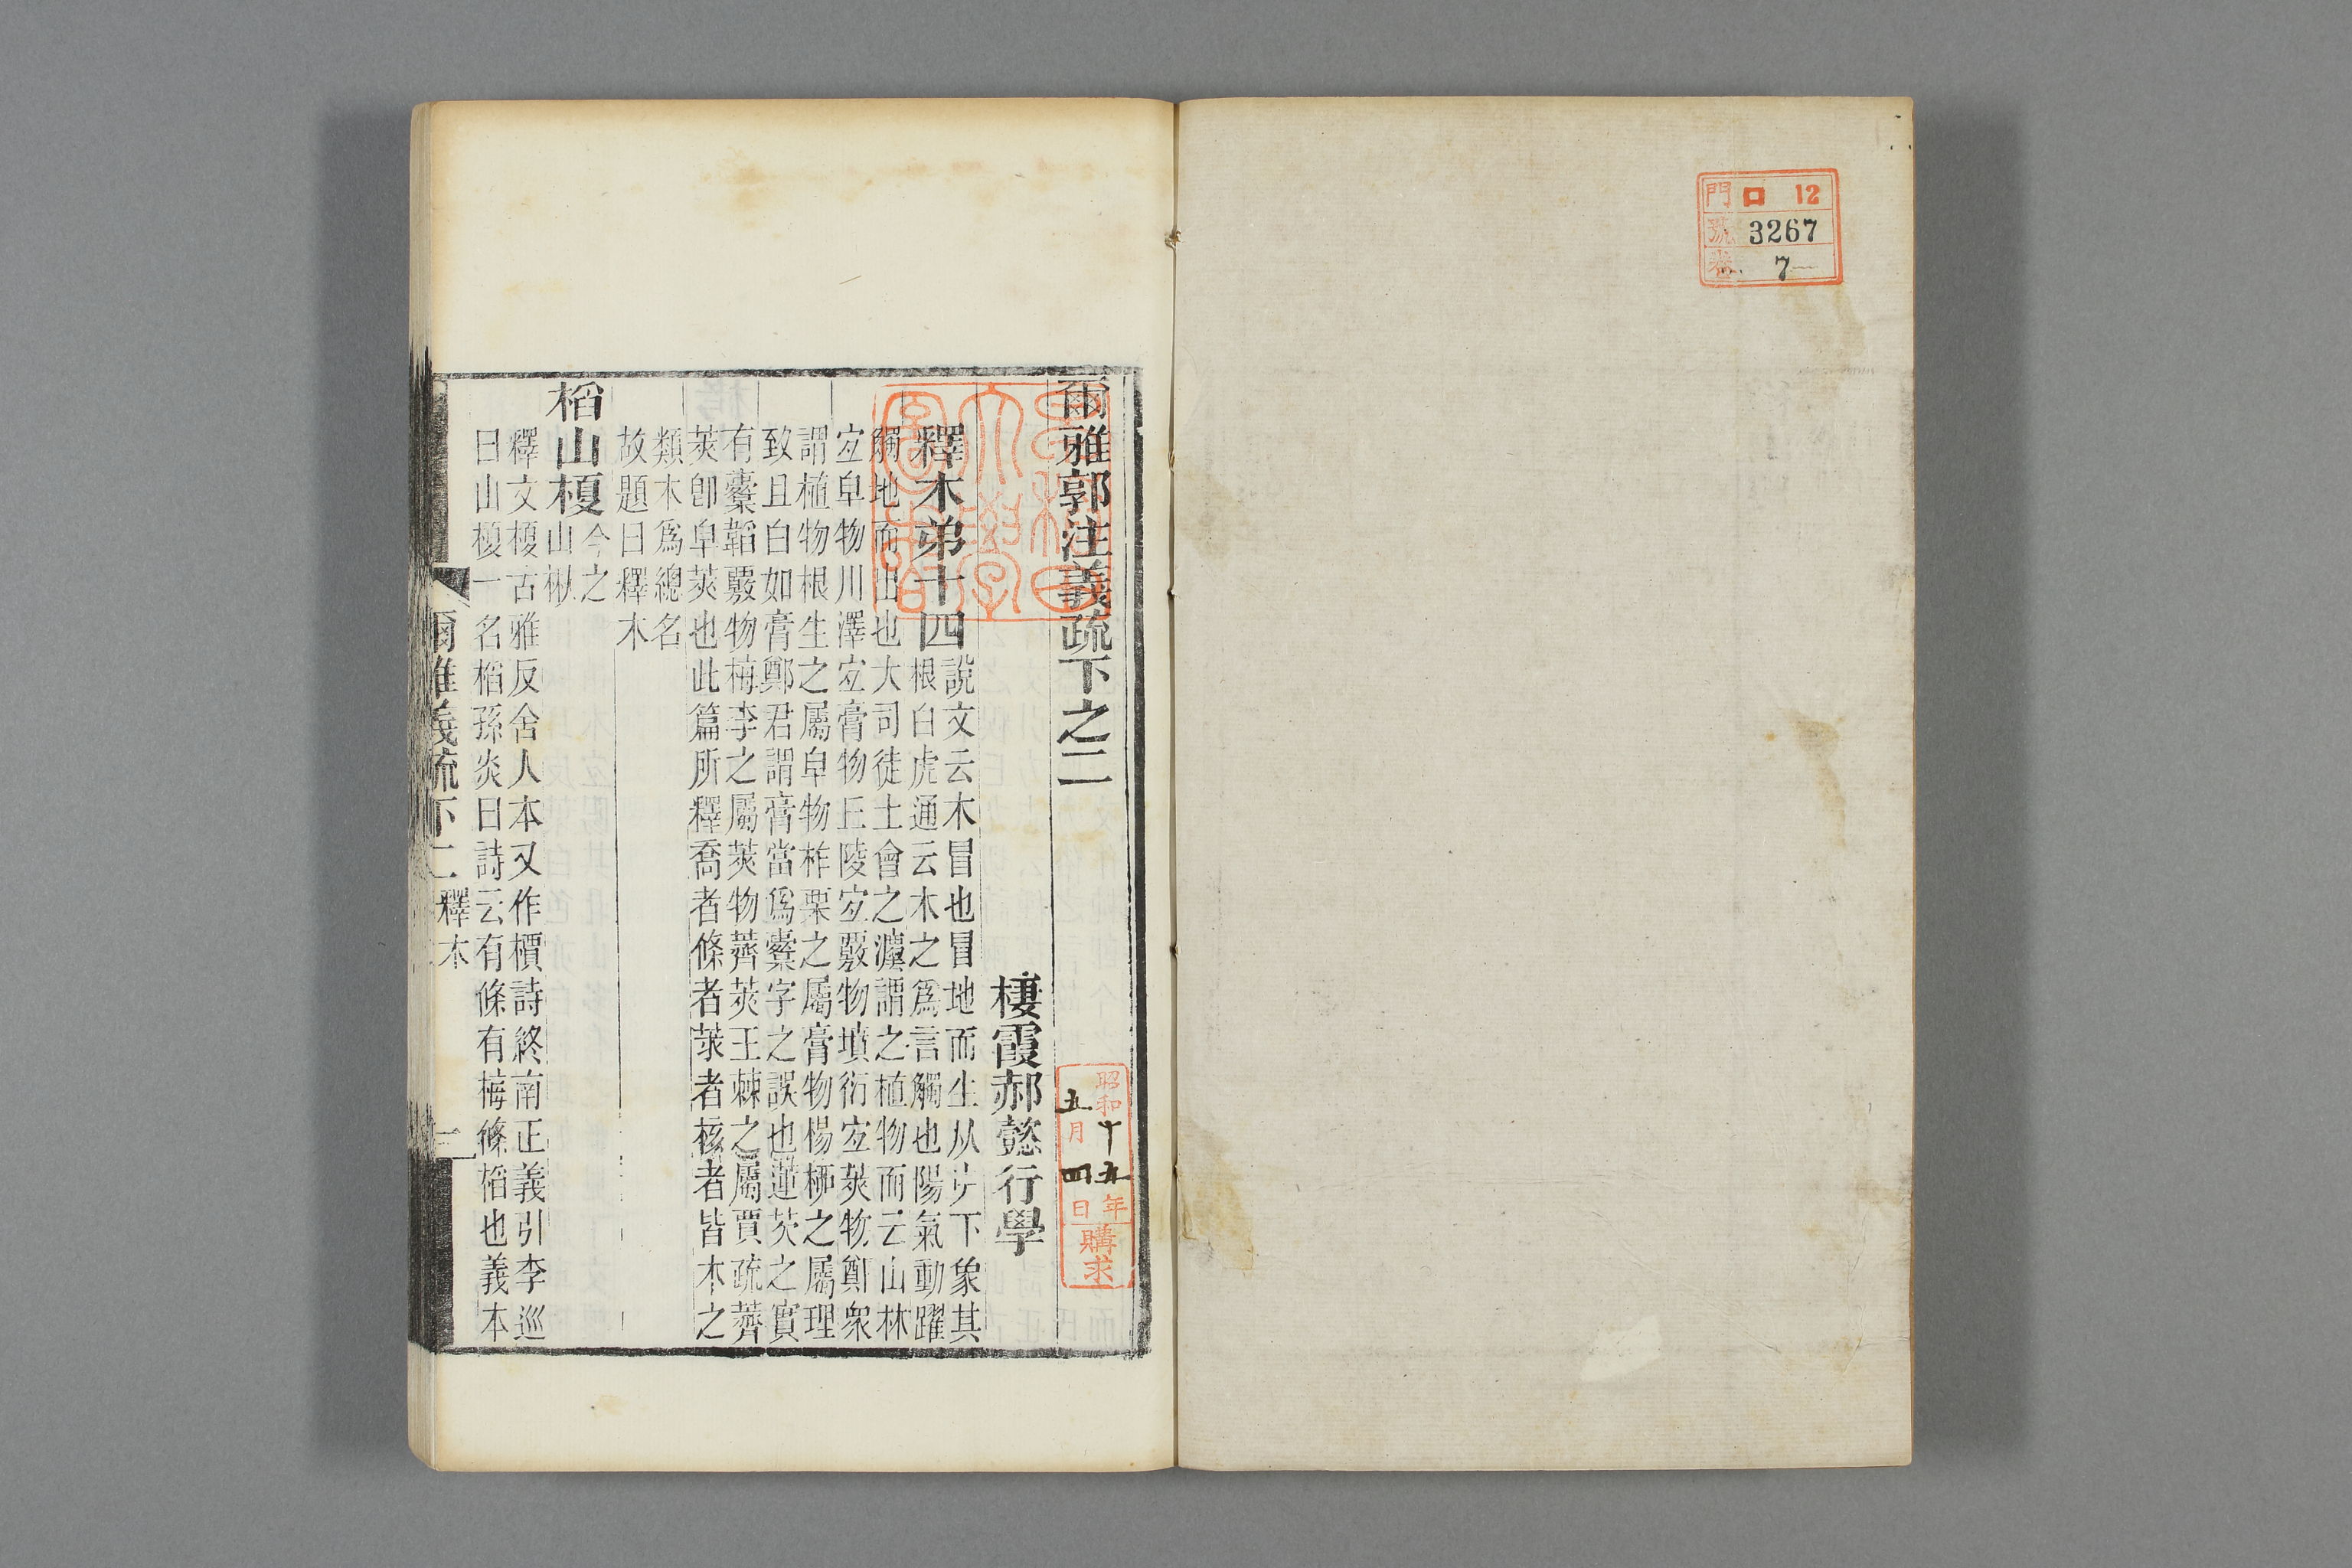 門 口 12
號 3267
卷 7
爾雅郭注義疏下之二
昭和十五年
五月四日
購求
棲霞郝懿行學
早稻田
大學
圖書
釋木弟十四
說文云木冒也冒地而生从屮下象其
根白虎通云木之爲言觸也陽氣動躍
觸地而出也大司徒土會之灋謂之植物而云山林
宐皁物川澤宐膏物丘陵宐覈物墳衍宐莢物鄭衆
謂植物根生之屬皁物柞栗之屬膏物楊柳之屬理
致且白如膏鄭君謂膏當爲櫜字之誤也蓮芡之實
有櫜韜覈物梅李之屬莢物薺莢王棘之屬賈疏薺
莢卽皁莢也此篇所釋喬者條者莍者核者皆木之
類木爲總名
故題曰釋木
稻山榎
今之
山楸
釋文榎古雅反舍人本又作檟詩終南正義引李巡
曰山榎一名稻孫炎曰詩云有條有梅條稻也義本
爾雅義疏下二 釋木 一